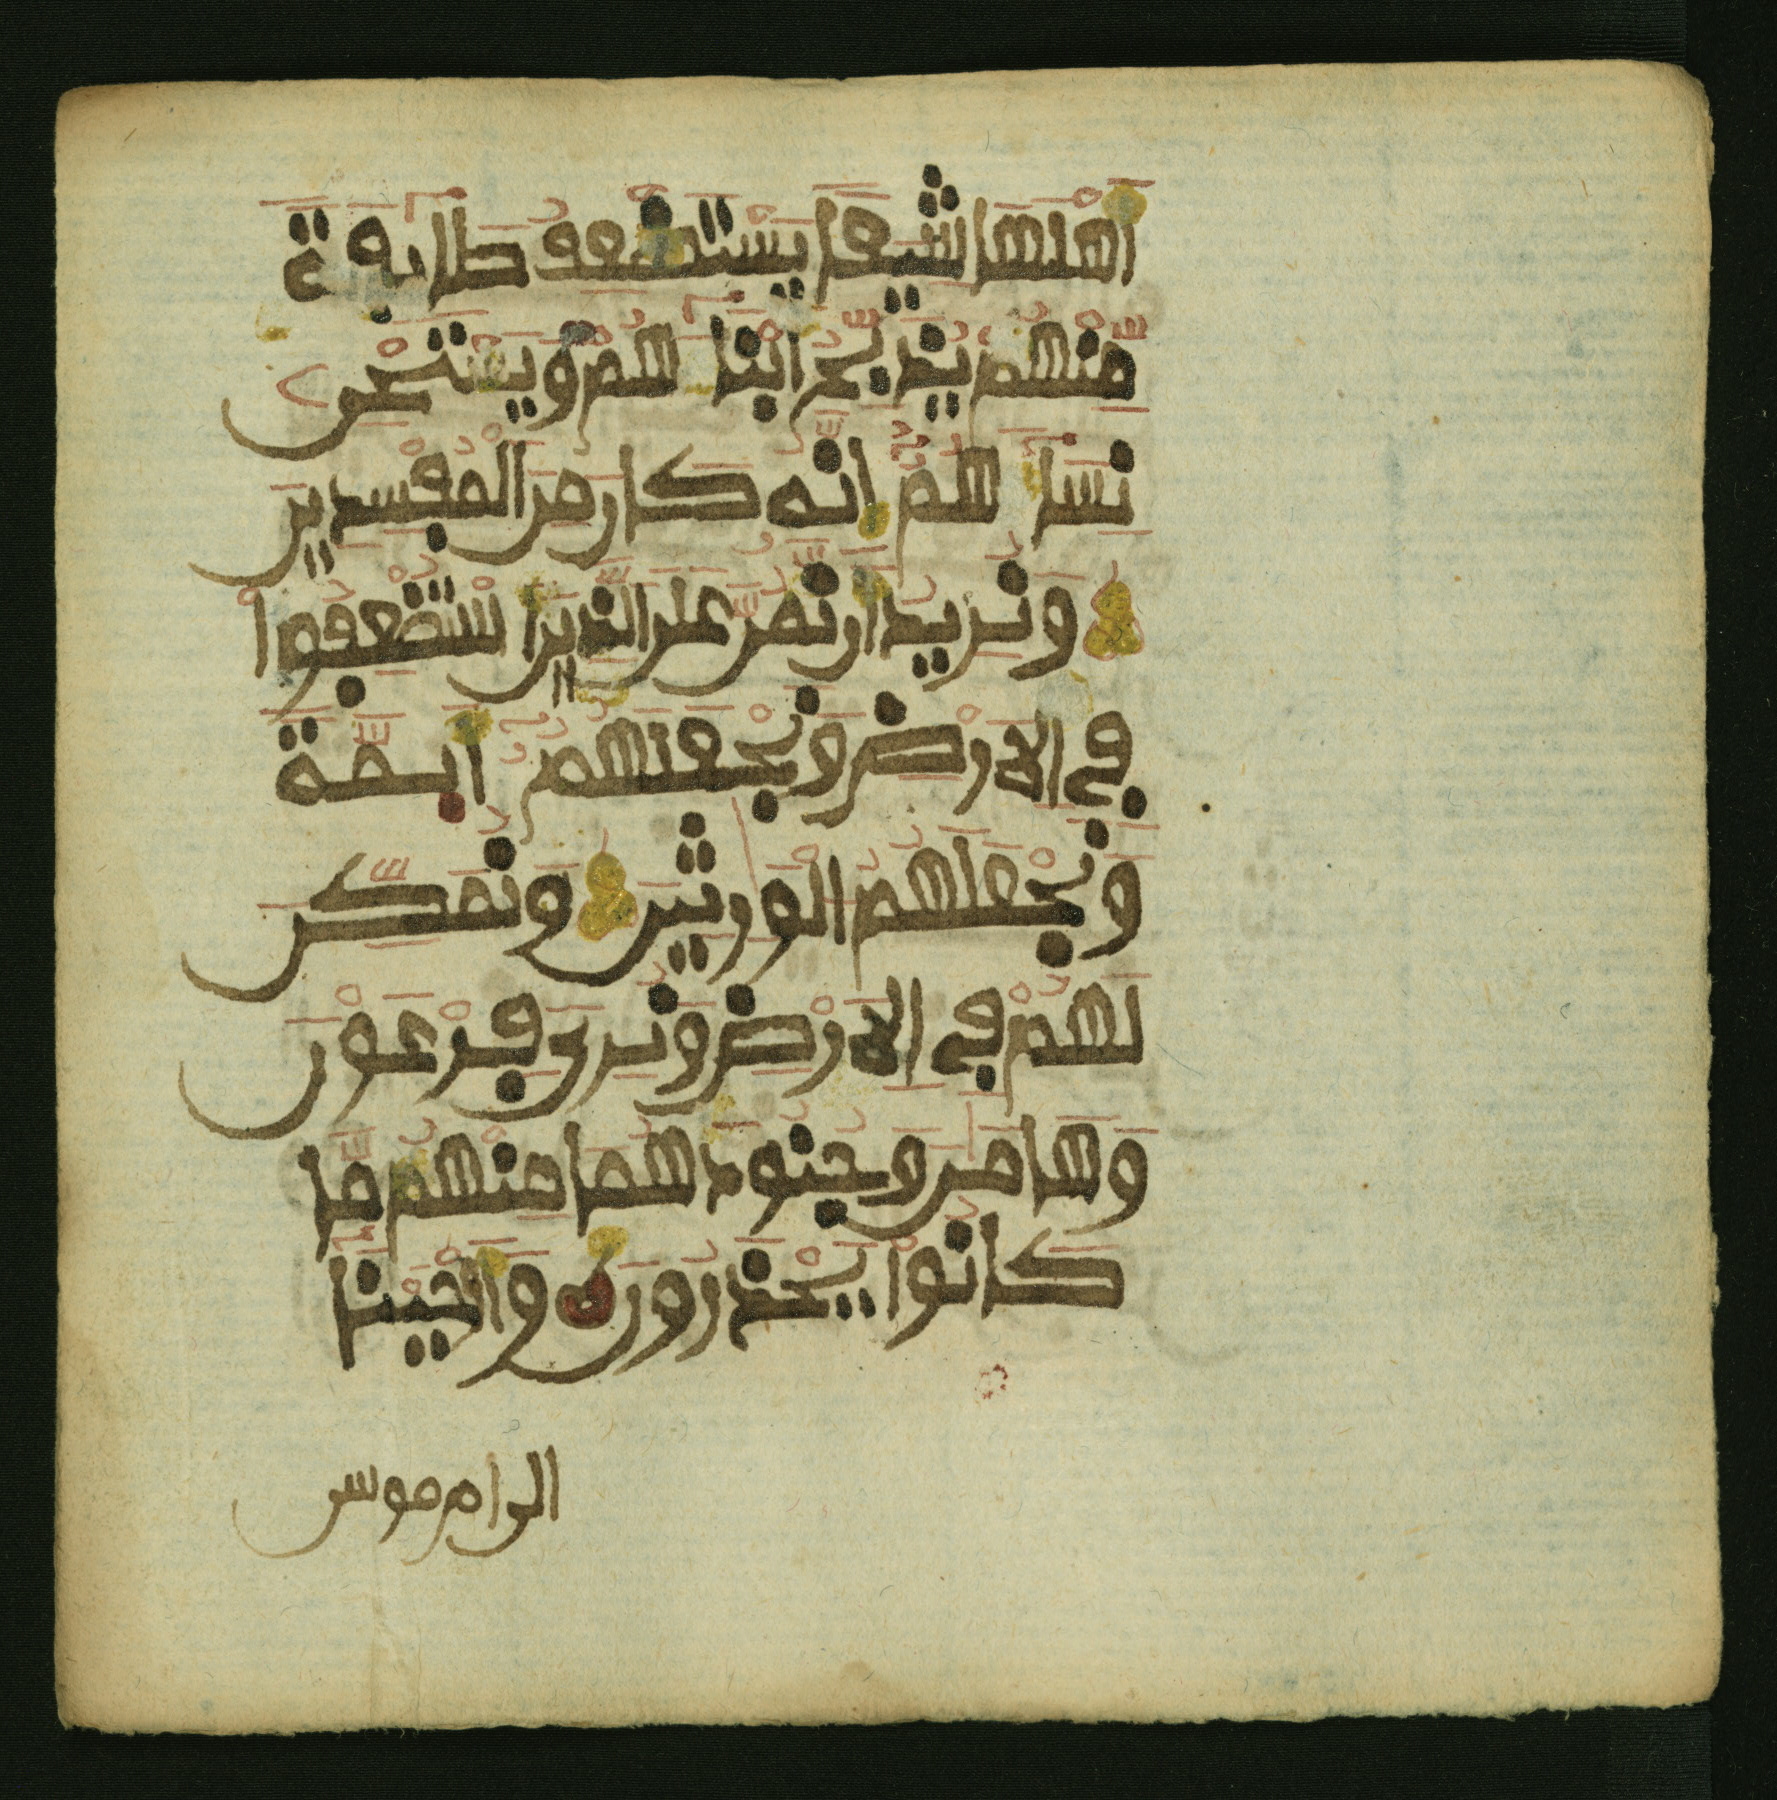 أَهْلَهَا شِيَعًا يَسْتَضْعِفُ طَآئِفَةً
مِّنْهُمْ يُذَبِّحُ أَبْنَآءَهُمْ وَيَسْتَحْيِ
نِسَآءَهُمُۥٓ إِنَّهُۥ كَانَ مِنَ الْمُفْسِدِينَ
وَنُرِيدُ أَن نَّمُنَّ عَلَى الَّذِينَ اَسْتُضْعِفُوا
فِي الَارْضِ وَنَجْعَلَهُمُۥٓ أَيِمَّةً
وَنَجْعَلَهُمُ الْوَرِثِينَ وَنُمَكِّنَ
لَهُمْ فِي الَارْضِ وَنُرِيَ فِرْعَوْنَ
وَهَامَنَ وَجُنُودَهُمَا مِنْهُم مَّا
كَانُوا يَحْذَرُونَ وَأَوْحَيْنَآ
الى ام موسى